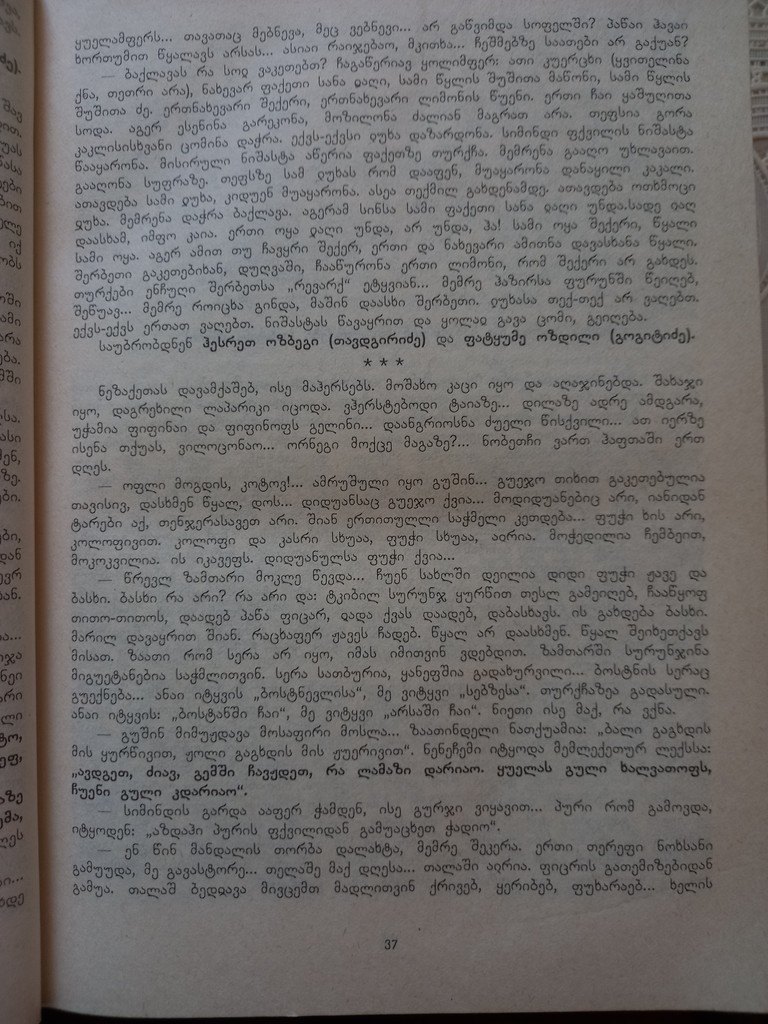 ყუელამფერს... თავათაც მებნევა, მეც ვებნევი... არ გაწვიმდა სოფელში? პაწაი ჰავაი
ხორთუმით წყალავს არსას... ასიაი რაიჯებაო, მკითხა... ჩეშმებზე საათები არ გაქუან?
— ბაქლავას რა სოჲ ვაკეთებთ? ჩაგაწერიავ ყოლიმფერ: ათი კუერცხი (ყვითელინა
ქნა, თეთრი არა), ნახევარ ფაქეთი სანა ჲაღი, სამი წყლის შუშითა მაწონი, სამი წყლის
შუშითა ძე. ერთნახევარი შექერი, ერთნახევარი ლიმონის წუენი. ერთი ჩაი ყაშუღითა
სოდა. აგერ ესენინა გარეკონა, მოზილონა ძალიან მაგრათ არა. თეფსია გორა
კაკლისისხვანი ცომინა დაჭრა. ექვს-ექვსი ჲუხა დაზარდონა. სიმინდი ფქვილის ნიშასტა
წააყარონა. მისირული ნიშასტა აწერია ფაქეთზე თურქჩა. მემრენა გააღო უხლავაით.
გააღონა სუფრაზე. თეფსზე სამ ჲუხას რომ დააფენ, მუაყარონა დანაყილი კაკალი.
ათავდება სამი ჲუხა, კიდუენ მუაყარონა. ასეა თექმილ გახდენამდე. ათავდება ოთხმოცი
ჲუხა. მემრენა დაჭრა ბაქლავა. აგერამ სინსა სამი ფაქეთი სანა ჲაღი უნდა.სადე ჲაღ
დაასხამ, იმფო კაია. ერთი ოყა ჲაღი უნდა, არ უნდა, ჰა! სამი ოყა შექერი, წყალი
სამი ოყა. აგერ ამით თუ ჩავყრი შექერ, ერთი და ნახევარი ამითნა დავასხანა წყალი.
შერბეთი გაკეთებიხან, დუღვაში, ჩააწურონა ერთი ლიმონი, რომ შექერი არ გახდეს.
თურქები ენჩუღი შერბეთსა „რევარქ“ ეტყვიან... მემრე ჰაზირსა ფურუნში წეიღებ,
შეწუავ... მემრე როიცხა გინდა, მაშინ დაასხი შერბეთი. ჲუხასა თექ-თექ არ ვაღებთ.
ექვს-ექვს ერთათ ვაღებთ. ნიშასტას წავაყრით და ყოლაჲ გავა ცომი, გეიღება.
საუბრობდნენ ჰესრეთ ოზბეგი (თავდგირიძე) და ფატყუმე ოზდილი (გოგიტიძე).
* * *
ნეზაქეთას დავამქაშებ, ისე მაჰერსებს. მოშახო კაცი იყო და აღაჯინებდა. შახაჯი
იყო, დაგრეხილი ლაპარიკი იცოდა. ვჰერსტებოდი ტაიაზე... დილაზე ადრე ამდგარა,
უჭამია ფიფინაი და ფიფინოფს გელინი... დაანგრიოსნა ძუელი წისქვილი... ათ იერზე
ისენა თქუას, ვილოცონაო... ორნეგი მოქცე მაგაზე?... ნობეთჩი ვართ ჰაფთაში ერთ
დღეს.
— ოფლი მოგდის, კოტოვ!... ამრუშული იყო გუშინ... გუეჯო თიხით გაკეთებულია
თავისივ, დასხმენ წყალ, დოს... დიდუანსაც გუეჯო ქვია... მოდიდუანებიც არი, იანიდან
ტარები აქ, თენჯერასავეთ არი. შიან ერთითულლი საჭმელი კეთდება... ფუჭი ხის არი,
კოლოფივით. კოლოფი და კასრი სხუაა, ფუჭი სხუაა, აჲრია. მოჭედილია ჩემბეით,
მოკოკვილია. ის იკავეფს. დიდუანულსა ფუჭი ქვია...
— წრევლ ზამთარი მოკლე წევდა... ჩუენ სახლში დეილია დიდი ფუჭი ჟავე და
ბასხი. ბასხი რა არი? რა არი და: ტკიბილ სურუნჯ ყურწით თესლ გამეიღებ, ჩააწყოფ
თითო-თითოს, დაადებ პაწა ფიცარ, ჲადა ქვას დაადებ, დაბასხავს. ის გახდება ბასხი.
მარილ დავაყრით შიან. რაცხაფერ ჟავეს ჩადებ. წყალ არ დაასხმენ. წყალ შეიხეთქავს
მისათ. ზაათი რომ სერა არ იყო, იმას იმითვინ ვდებდით. ზამთარში სურუნჯინა
მიგუეტანებია საჭმლითვინ. სერა სათბურია, ყანეფშია გადახურვილი... ბოსტნის სერაც
გუექნება... ანაი იტყვის „ბოსტნევლისა“, მე ვიტყვი „სებზესა“. თურქჩაზეა გადასული.
ანაი იტყვის: „ბოსტანში ჩაი“, მე ვიტყვი „არსაში ჩაი“. ნიეთი ისე მაქ, რა ვქნა.
— გუშინ მიმუჟდავა მოსაფირი მოსლა... ზაათინდელი ნათქუამია: „ბალი გაგხდის
მის ყურწივით, ჟოლი გაგხდის მის ჟუერივით“. ნენეჩემი იტყოდა მემლექეთურ ლექსსა:
„ავდგეთ, ძიავ, გემში ჩავჟდეთ, რა ლამაზი დარიაო. ყუელას გული ხალვათოფს,
ჩუენი გული კდარიაო“.
— სიმინდის გარდა ააფერ ჭამდენ, ისე გურჯი ვიყავით... პური რომ გამოვდა,
იტყოდენ: „აზდაჰი პურის ფქვილიდან გამუაცხეთ ჭადიო“.
— ენ წინ მანდალის თორბა დალახტა, მემრე შეკერა. ერთი თერეფი ნოხსანი
გამუუდა, მე გავასტორე... თელაშე მაქ დღესა... თალაში აჲრია. ფიცრის გათემიზებიდან
გამუა. თალაშ ბედჲავა მივცემთ მადლითვინ ქრივებ, ყერიბებ, ფუხარაებ... ხელის
37